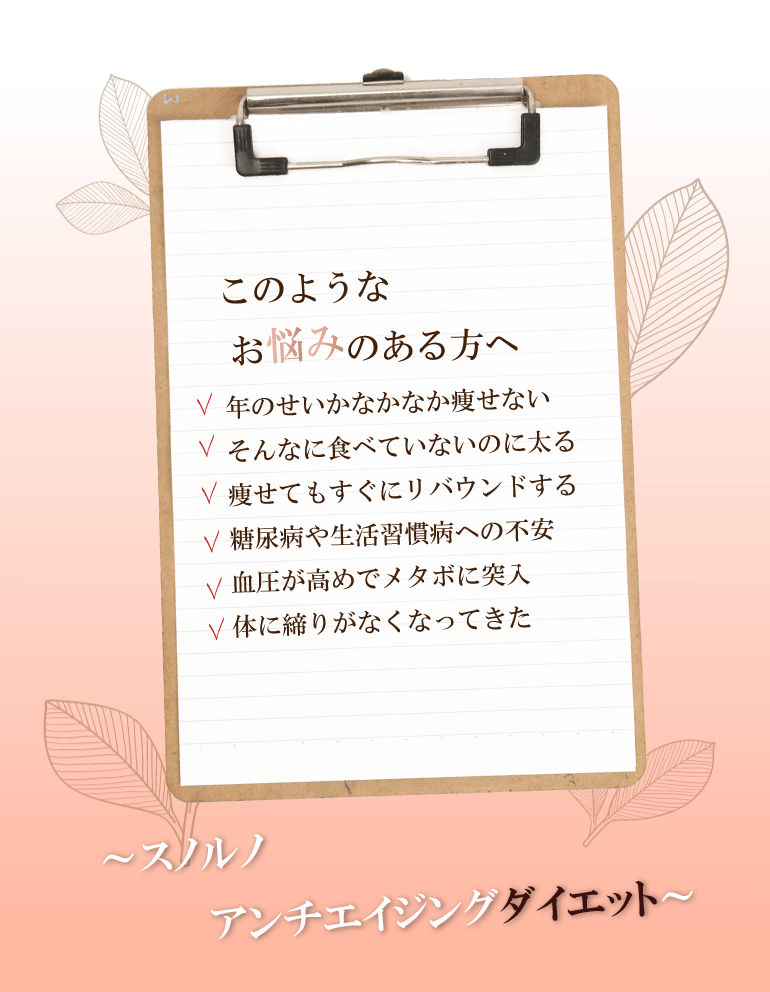 このような
お悩みのある方へ
√ 年のせいかなかなか痩せない
√ そんなに食べていないのに太る
√ 痩せてもすぐにリバウンドする
√ 糖尿病や生活習慣病への不安
√ 血圧が高めでメタボに突入
√ 体に締りがなくなってきた
～スノルノ
アンチエイジングダイエット～